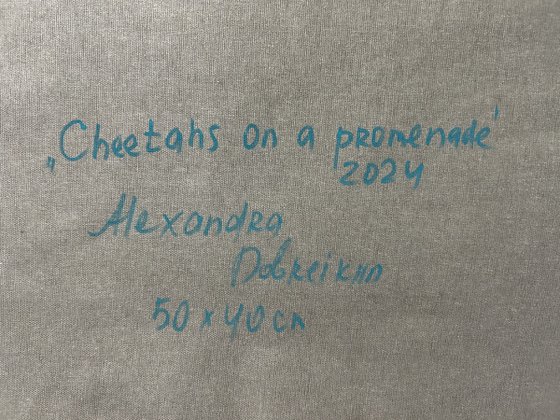 „Cheetahs on a promenade'
2024
Alexandra
50 x 40 cm